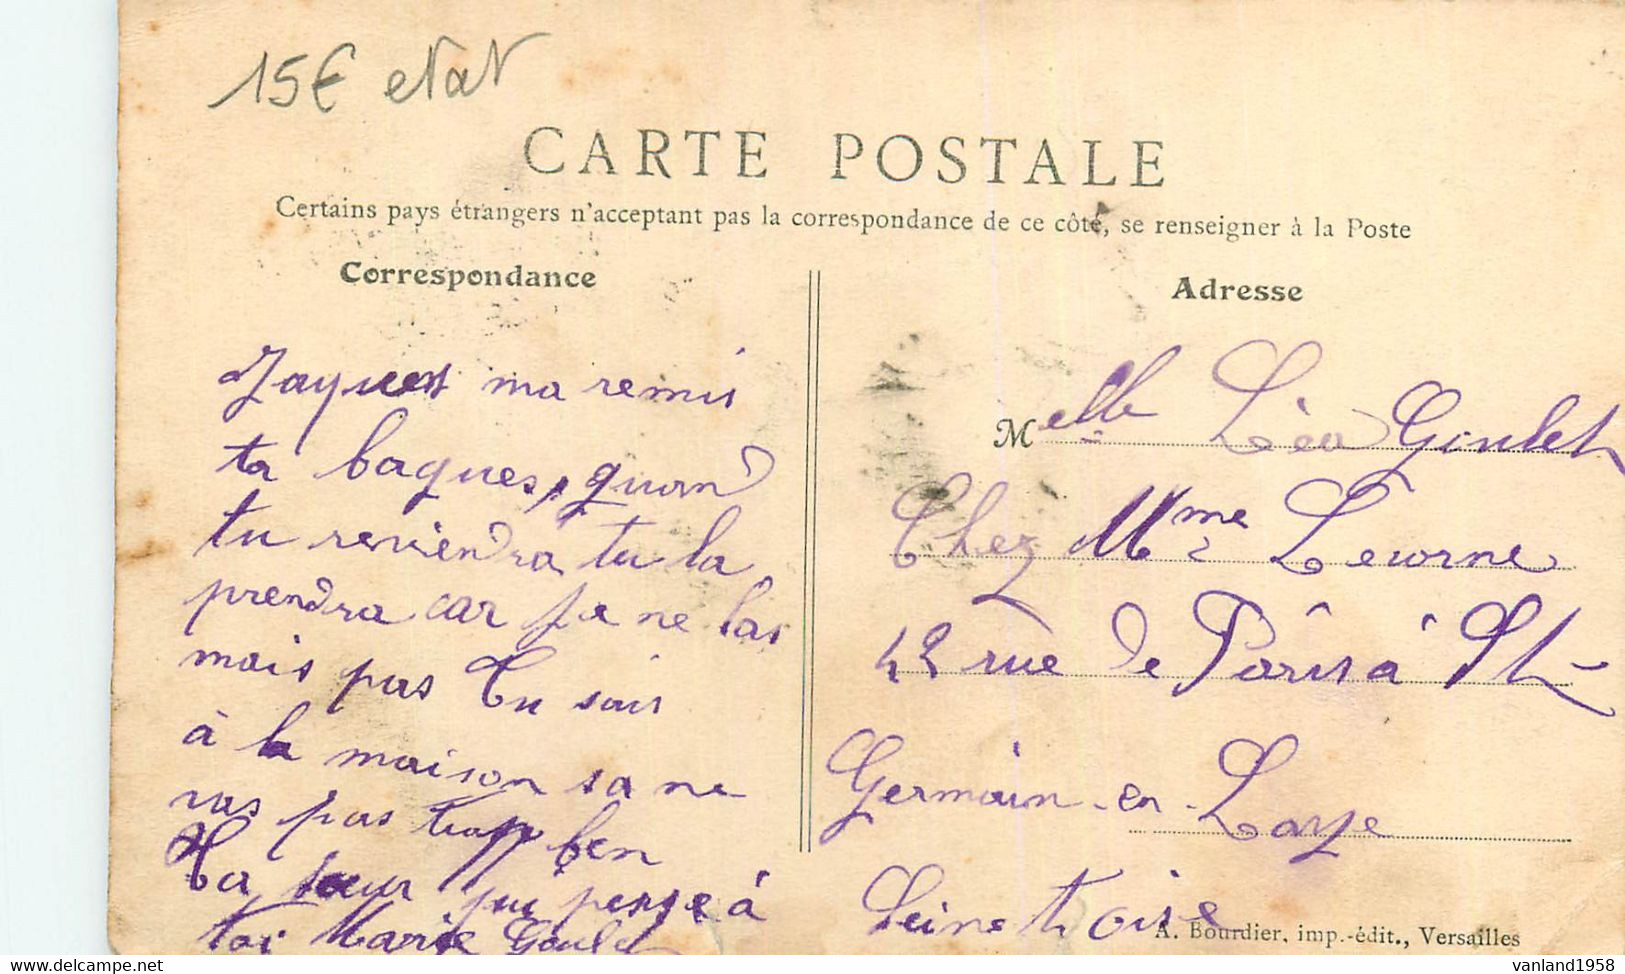 15€ etat
CARTE POSTALE
Certains pays étrangers n'acceptant pas la correspondance de ce côté, se renseigner à la Poste
Correspondance
Jaques ma remis
ta bagues, quand
tu reviendra tu la
prendra car je ne las
mais pas Tu sais
à la maison sa ne
vas pas trop ben
Ta sœur qui pense à
toi Marie Goulet
Adresse
Melle Léa Goulet
Chez Mme Leorne
42 rue de Pâris à St-
Germain-en-Laye
Seine et Oise
A. Bourdier, imp.-édit., Versailles
vanland1958